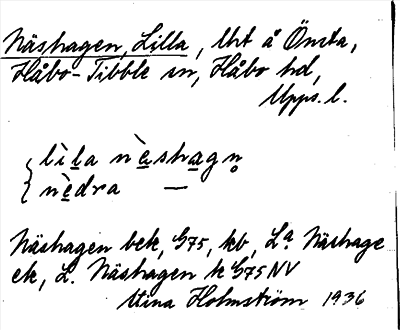 Näshagen, Lilla, Uht å Önsta,
Håbo-Tibble sn, Håbo hd,
Upps. l.
lìla nèshagn̥
nèdra —
Näshagen bek, G75, kb, Lª Näshage
ek, L. Näshagen k G75 NV
Stina Holmström 1936